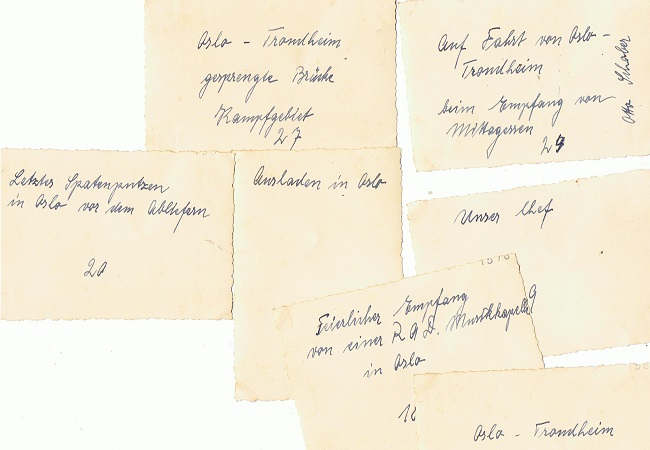 Oslo - Trondheim
gesprengte Brücke
Kampfgebiet
27
Auf Fahrt von Oslo -
Trondheim
beim Empfang von
Mittagessen
29
Otto Schober
Letztes Spatenputzen
in Oslo vor dem Abliefern
20
Ausladen in Oslo
Unser Chef
Feierlicher Empfang
von einer R A D. Musikkapelle
in Oslo
18
Oslo - Trondheim